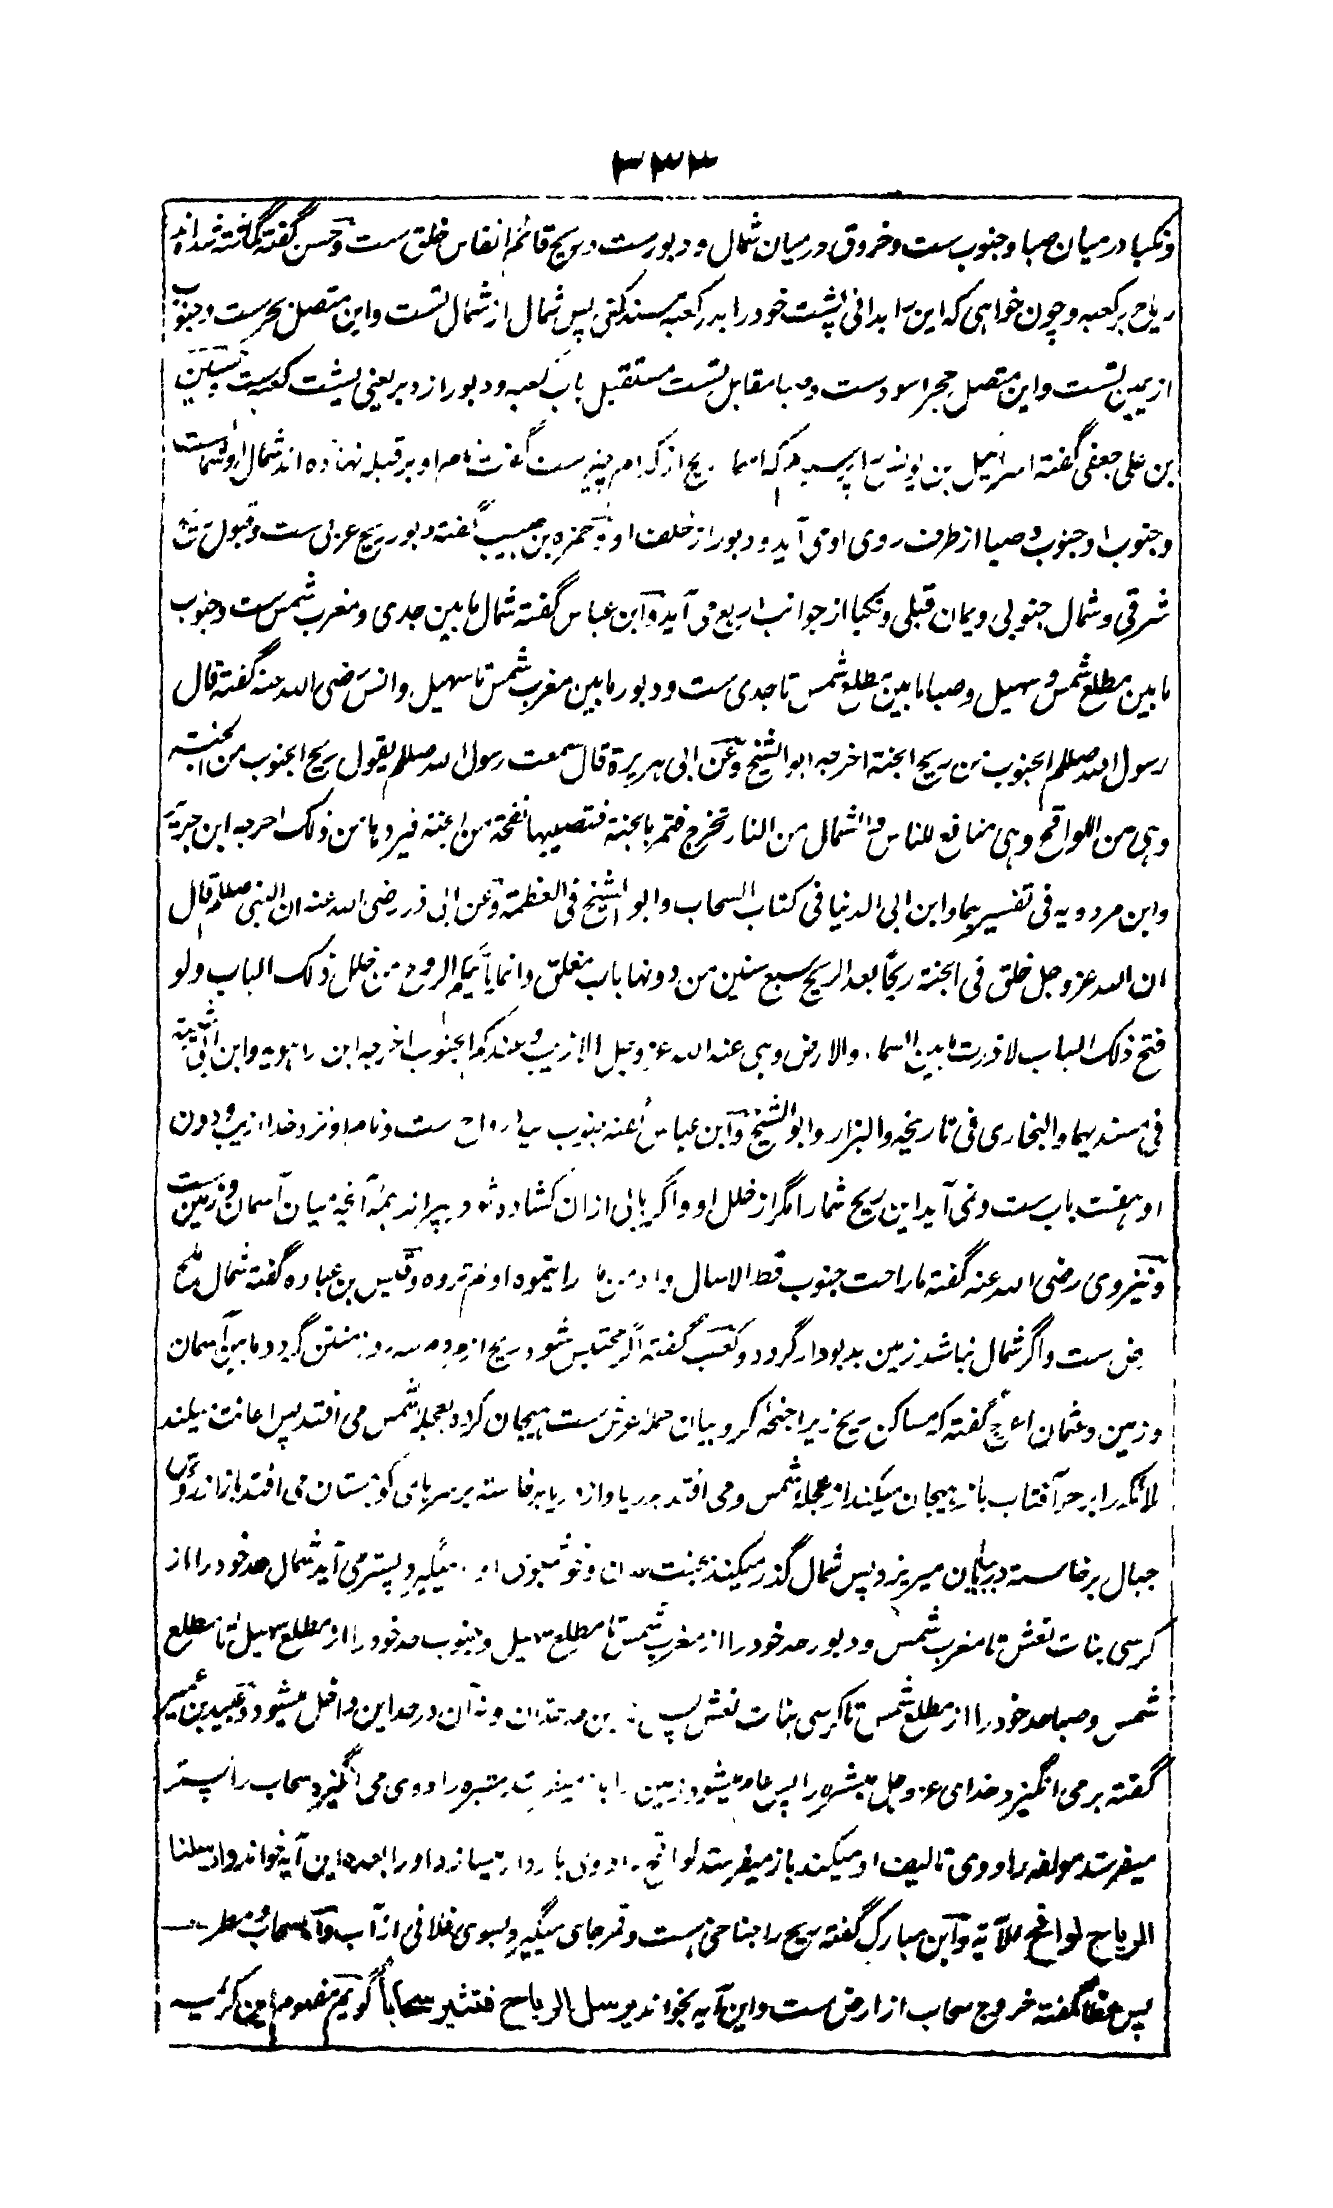 ۳۳۳
ونکبا درمیان صبا و جنوب ست و خروق درمیان شمال و دبور ست و ریح قائم انفاس خلق ست و حسن گفته گماشته شده اند
ریاح بر کعبه و چون خواهی که این را بدانی پشت خود را بدر کعبه مسند کنی پس شمال از شمال تست و این متصل حجر ست و جنوب
از یمین تست و این متصل حجر اسود ست و صبا مقابل تست مستقبل باب کعبه و دبور از دبر یعنی پشت کعبه ست حسین
بن علی جعفی گفته اسرائیل بن یونس را پرسیدم که اسماء ریح از کدام چیز ست گفت نام او بر قبله نهاده اند شمال او شمال ست
و جنوب او جنوب و صبا از طرف روی او می آید و دبور از خلف او و حمزه بن حبیب گفته دبور ریح غربی ست و قبول
شرقی و شمال جنوبی و یمان قبلی و نکبا از جوانب اربع می آید و ابن عباس گفته شمال مابین جدی و مغرب شمس ست و جنوب
مابین مطلع شمس و سهیل و صبا مابین مطلع شمس تا جدی ست و دبور مابین مغرب شمس تا سهیل و انس رضی الله عنه گفته قال
رسول الله صللم الجنوب من ریح الجنة اخرجه ابو الشیخ و عن ابی هریرة قال سمعت رسول الله صللم یقول ریح الجنوب من الجنة
وهی من اللواقح وهی منافع للناس و الشمال من النار تخرج فتمر بالجنة فتصیبها نفحة من الجنة فبردها من ذلک اخرجه ابن جریر
و ابن مردویه فی تفسیریهما و ابن ابی الدنیا فی کتاب السحاب و ابو الشیخ فی العظمة و عن ابی ذر رضی الله عنه ان النبی صللم قال
ان الله عز و جل خلق فی الجنة ریحا بعد الریح بسبع سنین من دونها باب مغلق و انما یأتیکم الروح من خلل ذلک الباب و لو
فتح ذلک الباب لاذرت مابین السماء والارض وهی عند الله عز و جل الازیب و عندکم الجنوب اخرجه ابن راهویه و ابن ابی شیبة
فی مسندیهما و البخاری فی تاریخه و البزار و ابو الشیخ و ابن عباس گفته جنوب سید ارواح ست و نام او نزد خدا ازیب و دون
او هفت باب ست و نمی آید این ریح شما را مگر از خلل او و اگر بابی از ان کشاده شود بپراند همه آنچه میان آسمان و زمین ست
و نیز وی رضی الله عنه گفته ما راحت جنوب قط الا سال واد من ماء را یتموه او لم تروه و قیس بن عباده گفته شمال ملح
ارض ست و اگر شمال نباشد زمین بدبودار گردد و کعب گفته اگر محتبس شود ریح از مردم سه روز منتن گردد مابین آسمان
و زمین و عثمان اعرج گفته که مساکن ریح زیر اجنحه کروبیان حملهٔ عرش ست هیجان کرده بعجلهٔ شمس می افتد پس اعانت میکنند
ملائکه را بر جر آفتاب باز هیجان میکند از عجلهٔ شمس و می افتد بدریا و از دریا برخاسته بر سرهای کوهستان می افتد باز از رؤس
جبال برخاسته در بیابان میریزد پس شمال گذر میکند بجنت عدن و خوشبوی او میگیرد پستر می آید شمال حد خود را از
کرسی بنات نعش تا مغرب شمس و دبور حد خود را از مغرب شمس تا مطلع سهیل و جنوب حد خود را از مطلع سهیل تا مطلع
شمس و صبا حد خود را از مطلع شمس تا کرسی بنات نعش پس نه این در حد آن و نه آن در حد این داخل میشود و عبید بن عمیر
گفته بر می انگیزد خدای عز و جل مبشره را پس میشود زمین را باز میفرستد مثیره را و وی می انگیزد سحاب را پستر
میفرستد مولفه را و وی تالیف او میکند باز میفرستد لواقح را و وی باردار میسازد او را بعده این آیه خواند و ارسلنا
الریاح لواقح الآیة و ابن مبارک گفته ریح را جناحی هست و قمر جای میگیرد بسوی غلافی از آب و اما سحاب و مطر
پس عطا گفته خروج سحاب از ارض ست و این آیه بخواند یرسل الریاح فتثیر سحاباً گویم مفهوم این کریمه